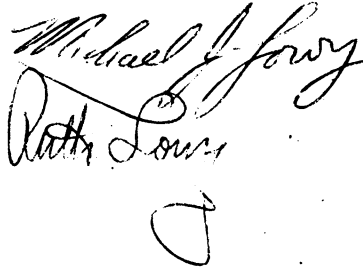 Michael J. Lowy
Ruth Lowy